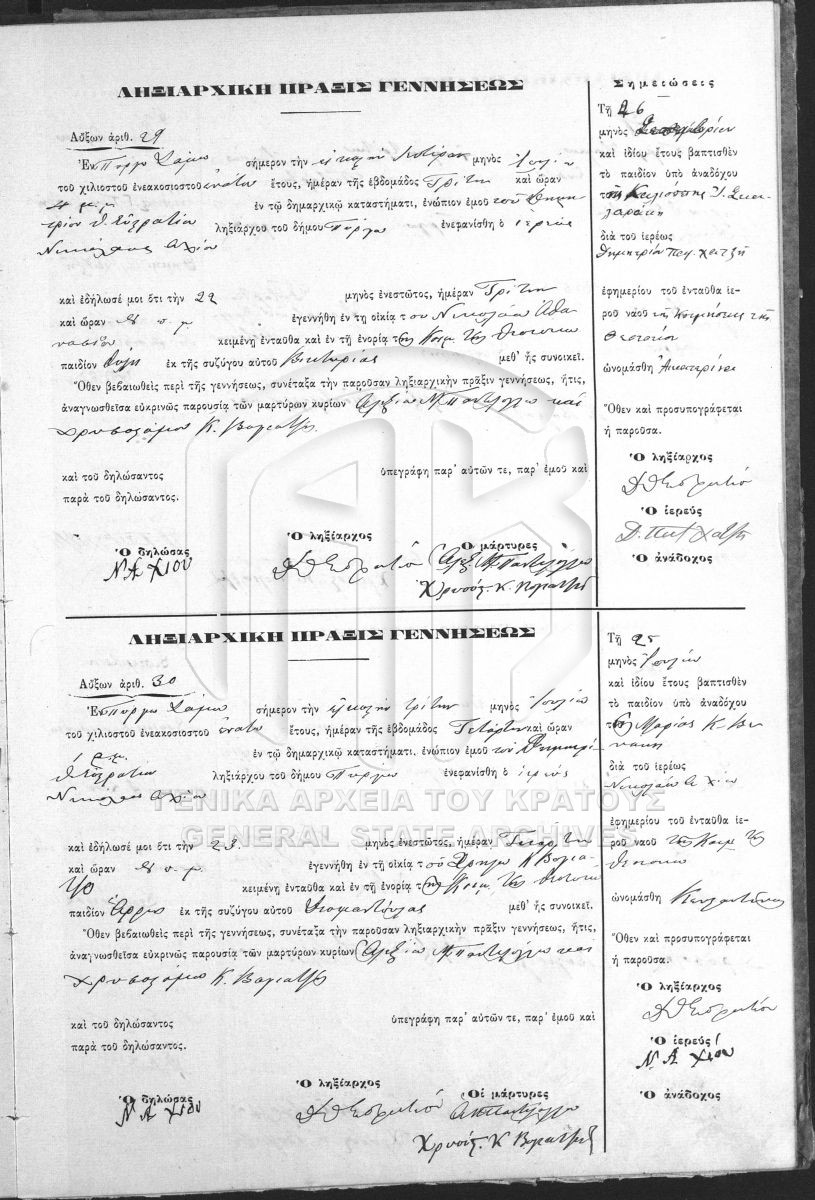 ΛΗΞΙΑΡΧΙΚΗ ΠΡΑΞΙΣ ΓΕΝΝΗΣΕΩΣ
Αὔξων ἀριθ. 29
Ἐν Πύργῳ Σάμου σήμερον τὴν εἰκοστὴν μηνὸς Ἰουλίου
τοῦ χιλιοστοῦ ἐνεακοσιοστοῦ ἐνάτου ἔτους, ἡμέραν τῆς ἑβδομάδος Τρίτην καὶ ὥραν
ἐν τῷ δημαρχικῷ καταστήματι, ἐνώπιον ἐμοῦ τοῦ Δημη
τρίου Θ. Εὐστρατίου ληξιάρχου τοῦ δήμου Πύργου ἐνεφανίσθη ὁ ἱερεὺς
Νικόλαος Α Χίου
καὶ ἐδήλωσέ μοι ὅτι τὴν 22 μηνὸς ἐνεστῶτος, ἡμέραν Τρίτην
καὶ ὥραν π. μ. ἐγεννήθη ἐν τῃ οἰκίᾳ τοῦ Νικολάου Ἀθα
νασίου κειμένῃ ἐνταῦθα καὶ ἐν τῇ ἐνορίᾳ τῆς Κοιμ. τῆς Θεοτόκου
παιδίον θῆλυ ἐκ τῆς συζύγου αὐτοῦ Βικτωρίας μεθ' ἧς συνοικεῖ.
Ὅθεν βεβαιωθεὶς περὶ τῆς γεννήσεως, συνέταξα τὴν παροῦσαν ληξιαρχικὴν πρᾶξιν γεννήσεως, ἥτις,
ἀναγνωσθεῖσα εὐκρινῶς παρουσίᾳ τῶν μαρτύρων κυρίων Ἀλεξίου Μ. Παντελόγλου καὶ
Χρυσοστόμου Κ. Βογιατζῆ
καὶ τοῦ δηλώσαντος ὑπεγράφη παρ' αὐτῶν τε, παρ' ἐμοῦ καὶ
παρὰ τοῦ δηλώσαντος.
Ὁ δηλώσας Ὁ ληξίαρχος Οἱ μάρτυρες
Ν Α Χίου Δ Θ Εὐστρατίου Ἀλεξ. Μ. Παντελόγλου
Χρυσόστ. Κ. Βογιατζῆς
Σημειώσεις
Τῇ 26
μηνὸς
καὶ ἰδίου ἔτους βαπτισθὲν
τὸ παιδίον ὑπὸ ἀναδόχου
τῆς Καλλιόπης
διὰ τοῦ ἱερέως
Δημητρίου Παπ. Χατζῆ
ἐφημερίου τοῦ ἐνταῦθα ἱε-
ροῦ ναοῦ τῆς Κοιμήσεως τῆς
Θεοτόκου
ὠνομάσθη Αἰκατερίνη
Ὅθεν καὶ προσυπογράφεται
ἡ παροῦσα.
Ὁ ληξίαρχος
Δ Θ Εὐστρατίου
Ὁ ἱερεὺς
Δ. Παπ Χατζῆ
Ὁ ἀνάδοχος
ΛΗΞΙΑΡΧΙΚΗ ΠΡΑΞΙΣ ΓΕΝΝΗΣΕΩΣ
Αὔξων ἀριθ. 30
Ἐν Πύργῳ Σάμου σήμερον τὴν εἰκοστὴν τρίτην μηνὸς Ἰουλίου
τοῦ χιλιοστοῦ ἐνεακοσιοστοῦ ἐνάτου ἔτους, ἡμέραν τῆς ἑβδομάδος Τετάρτην καὶ ὥραν
ἐν τῷ δημαρχικῷ καταστήματι. ἐνώπιον ἐμοῦ τοῦ Δημητρί
Θ Εὐστρατίου ληξιάρχου τοῦ δήμου Πύργου ἐνεφανίσθη ὁ ἱερεὺς
Νικόλαος Α Χίου
καὶ ἐδήλωσέ μοι ὅτι τὴν 23. μηνὸς ἐνεστῶτος, ἡμέραν Τετάρτην
καὶ ὥραν π. μ. ἐγεννήθη ἐν τῇ οἰκίᾳ τοῦ Κ Βογια-
τζῆ κειμένῃ ἐνταῦθα καὶ ἐν τῇ ἐνορίᾳ τῆς Κοιμ. τῆς Θεοτόκου
παιδίον ἄρρεν ἐκ τῆς συζύγου αὐτοῦ Διαμαντούλας μεθ' ἧς συνοικεῖ.
Ὅθεν βεβαιωθεὶς περὶ τῆς γεννήσεως, συνέταξα τὴν παροῦσαν ληξιαρχικὴν πρᾶξιν γεννήσεως, ἥτις,
ἀναγνωσθεῖσα εὐκρινῶς παρουσίᾳ τῶν μαρτύρων κυρίων Ἀλεξίου Μ. Παντελόγλου καὶ
Χρυσοστόμου Κ. Βογιατζῆ
καὶ τοῦ δηλώσαντος ὑπεγράφη παρ' αὐτῶν τε, παρ' ἐμοῦ καὶ
παρὰ τοῦ δηλώσαντος.
Ὁ δηλώσας Ὁ ληξίαρχος Οἱ μάρτυρες
Ν Α Χίου Δ Θ Εὐστρατίου Α Μ Παντελόγλου
Χρυσόστ. Κ Βογιατζῆς
Τῇ 25
μηνὸς Ἰουλίου
καὶ ἰδίου ἔτους βαπτισθὲν
τὸ παιδίον ὑπὸ ἀναδόχου
τῆς Μαρίας Κ.
διὰ τοῦ ἱερέως
Νικολάου Α Χίου
ἐφημερίου τοῦ ἐνταῦθα ἱε-
ροῦ ναοῦ τῆς Κοιμ τῆς
Θεοτόκου
ὠνομάσθη Κωνσταντῖνος
Ὅθεν καὶ προσυπογράφεται
ἡ παροῦσα.
Ὁ ληξίαρχος
Δ Θ Εὐστρατίου
Ὁ ἱερεὺς
Ν Α Χίου
Ὁ ἀνάδοχος
ΓΕΝΙΚΑ ΑΡΧΕΙΑ ΤΟΥ ΚΡΑΤΟΥΣ
GENERAL STATE ARCHIVES